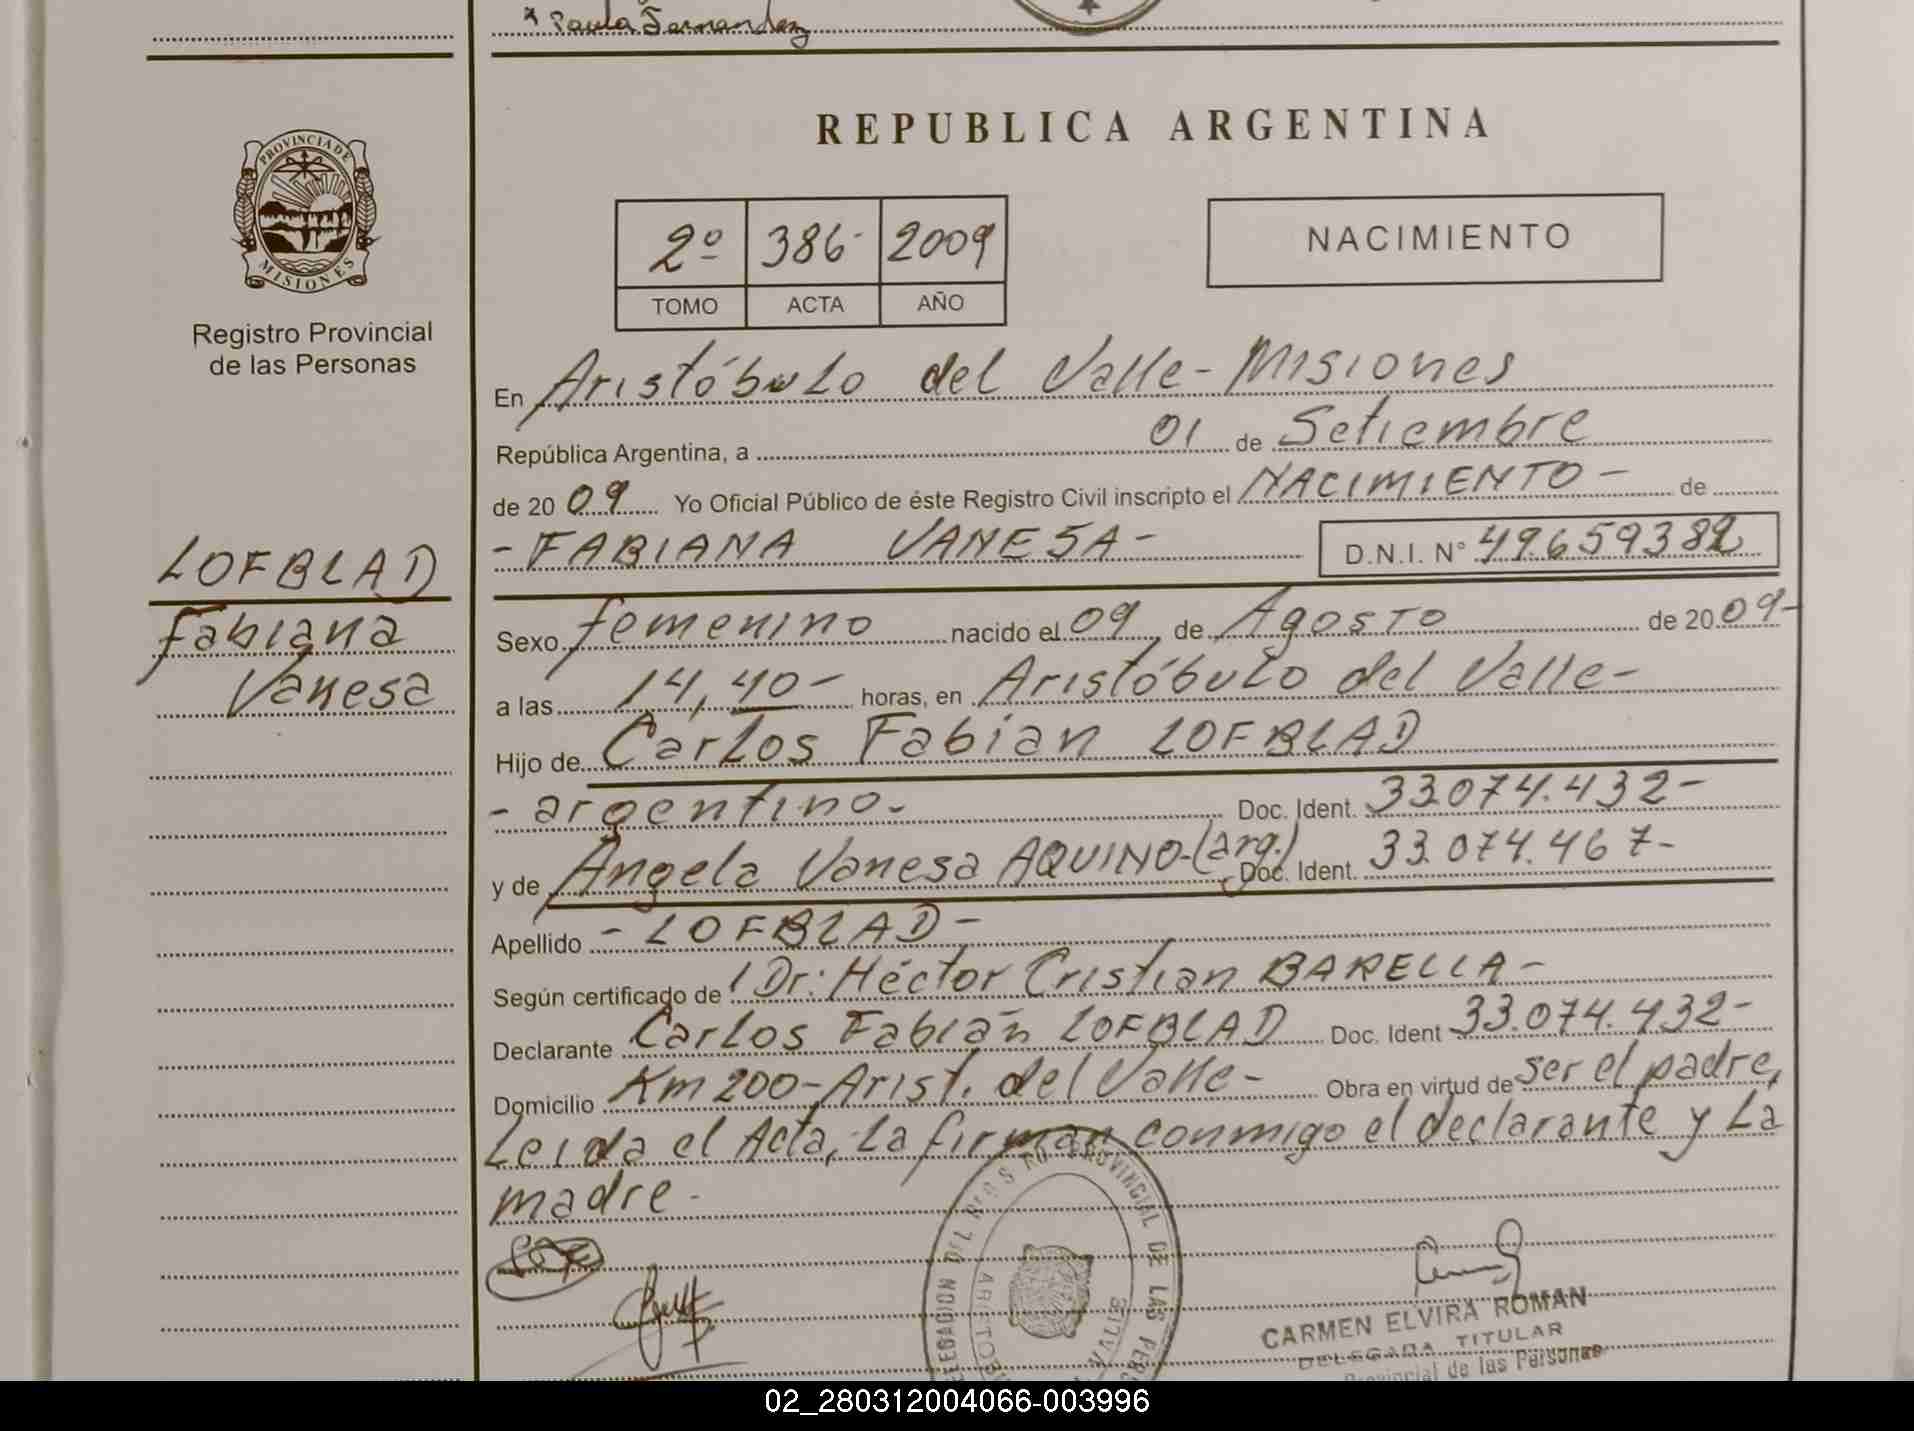 * Paula Fernandez
PROVINCIA DE
MISIONES
Registro Provincial
de las Personas
LOFBLAD
Fabiana
Vanesa
REPUBLICA ARGENTINA
2º 386- 2009
TOMO ACTA AÑO
NACIMIENTO
En Aristóbulo del Valle - Misiones
República Argentina, a 01 de Setiembre
de 2009 Yo Oficial Público de éste Registro Civil inscripto el NACIMIENTO - de
- FABIANA VANESA - D.N.I. N° 49.659.382
Sexo femenino nacido el 09 de Agosto de 2009-
a las 14,40- horas, en Aristóbulo del Valle-
Hijo de Carlos Fabian LOFBLAD
- argentino- Doc. Ident. 33.074.432-
y de Angela Vanesa AQUINO-(arg.) Doc. Ident. 33.074.467-
Apellido - LOFBLAD -
Según certificado de Dr: Héctor Cristian BARELLA-
Declarante Carlos Fabián LOFBLAD Doc. Ident 33.074.432-
Domicilio Km 200-Arist. del Valle- Obra en virtud de ser el padre,
Leida el Acta, la firman conmigo el declarante y la
madre-
DEL REGISTRO PROVINCIAL DE LAS
CARMEN ELVIRA ROMAN
DELEGADA TITULAR
Provincial de las Personas
02_280312004066-003996